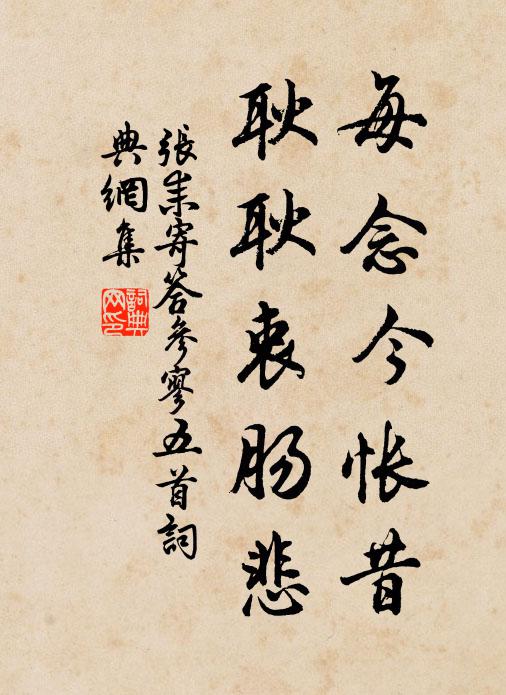 每念今怅昔
耿耿衷肠悲
張耒寄答參寥五首詞
典網集
詞典网印